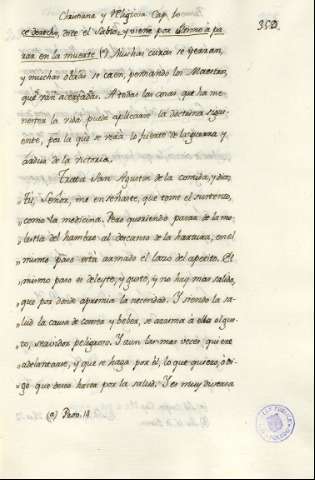 Christiana y Religiosa Cap. 10
380.
ce derecho, dice el Sabio, y viene por último a pa-
rar en la muerte (a). Muchas curas se yerran,
y muchas obras se caen, pensando los Maestros,
que van acertadas. A todas las cosas que ha me-
nester la vida puede aplicarse la doctrina sigui-
ente, por la que se verá lo fuerte de la guerra y
dudia de la victoria.
Trata San Agustin de la comida, y dice,
Tú, Señor, me enseñaste, que tome el sustento,
"como la medicina. Pero queriendo pasar de la mo-
"lestia del hambre al descanso de la hartura, en el
"mismo paso está armado el lazo del apetito. El
"mismo paso es deleyte, y gusto, y no hay mas salida,
"que por donde apremia la necesidad. Y siendo la sa-
"lud la causa de comer y beber, se arrima a ella el gus-
"to, servidor peligroso. Y aun las mas veces quiere
"adelantarse, y que se haga por él, lo que quiero, o di-
"go que devo hacer por la salud. Y es muy diversa
(a) Prov. 14